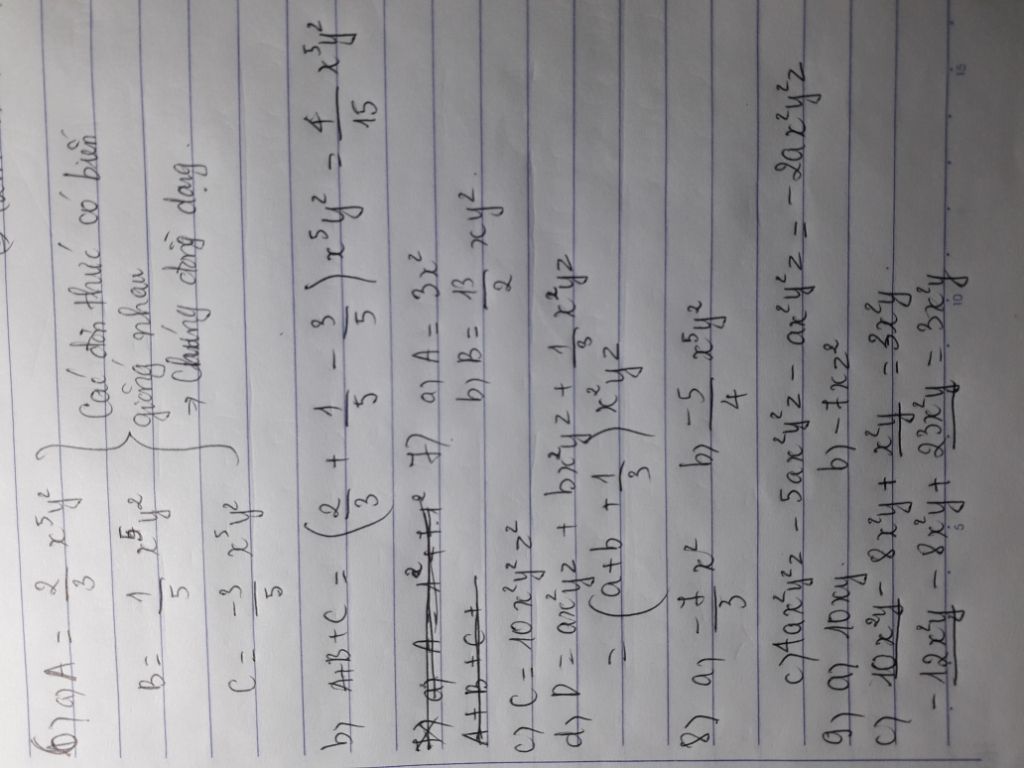 6) a) A = 2/3 x⁵y²
B = 1/5 x⁵y²
C = -3/5 x⁵y²
Các đơn thức có biến
giống nhau
→ Chúng đồng dạng.
b) A+B+C = (2/3 + 1/5 - 3/5) x⁵y² = 4/15 x⁵y²
7) a) A = 3x²
A+B+C+
b) B = 13/2 xy².
c) C = 10x²y²z²
d) D = ax²yz + bx²yz + 1/3 x²yz
= (a+b + 1/3) x²yz
8) a) -7/3 x² b) -5/4 x⁵y²
c) 4ax²y²z - 5ax²y²z - ax²y²z = -2ax²y²z
9) a) 10xy. b) -7xz²
c) 10x²y - 8x²y + x²y = 3x²y.
-12x²y - 8x²y + 23x²y = 3x²y.
5 10 15